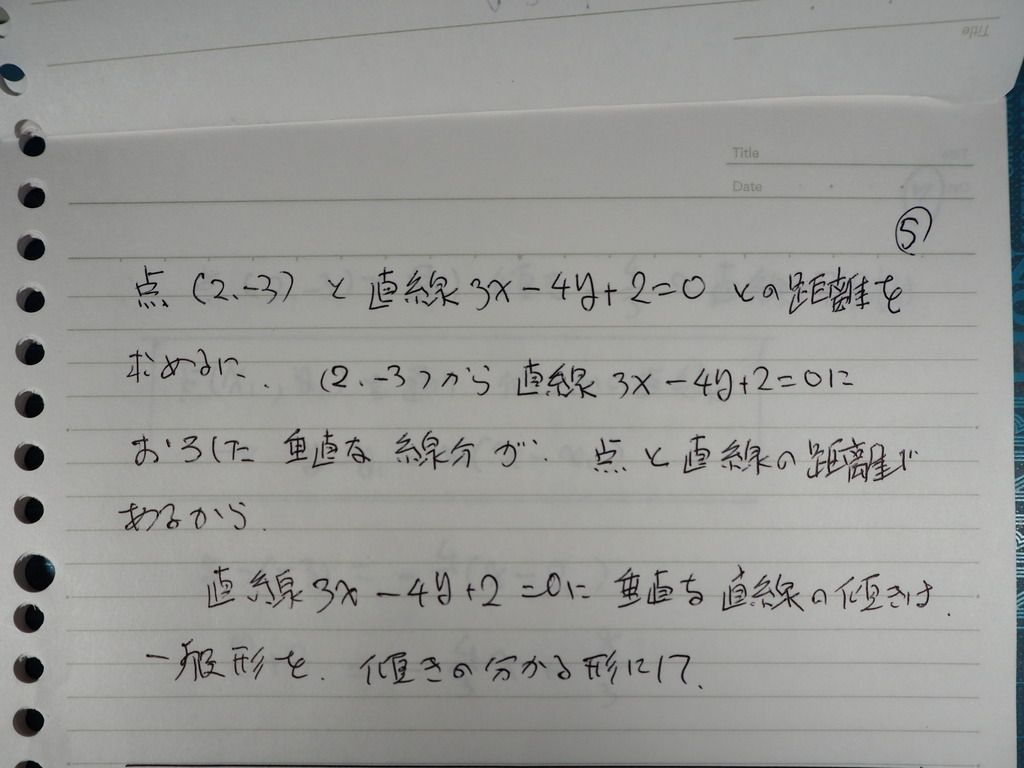 Title
Title
Date
⑤
点(2、-3)と直線3x-4y+2=0との距離を
求めるに、(2、-3)から直線3x-4y+2=0に
おろした垂直な線分が、点と直線の距離で
あるから、
直線3x-4y+2=0に垂直な直線の傾きは、
一般形を、傾きの分かる形にして、